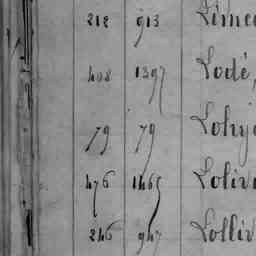 212 913 Limeu
408 1397 Lodé,
79 79 Lohyo
476 1465 Loliv
246 947 Lolliv